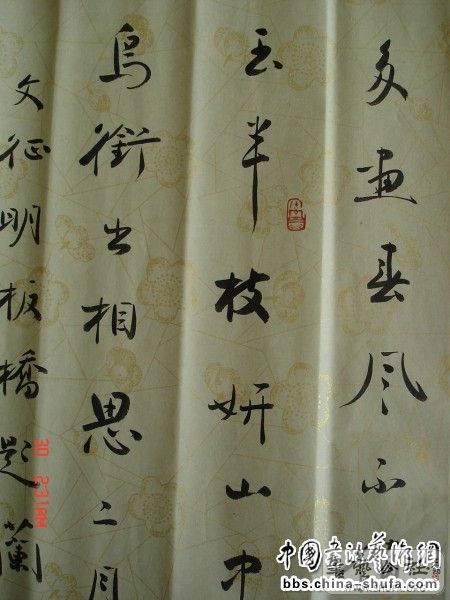 多畫春风不
玉半枝妍山中
鸟銜出相思二月
文征明板橋題蘭
30 2:31AM
中国书法艺术網
bbs.china-shufa.com